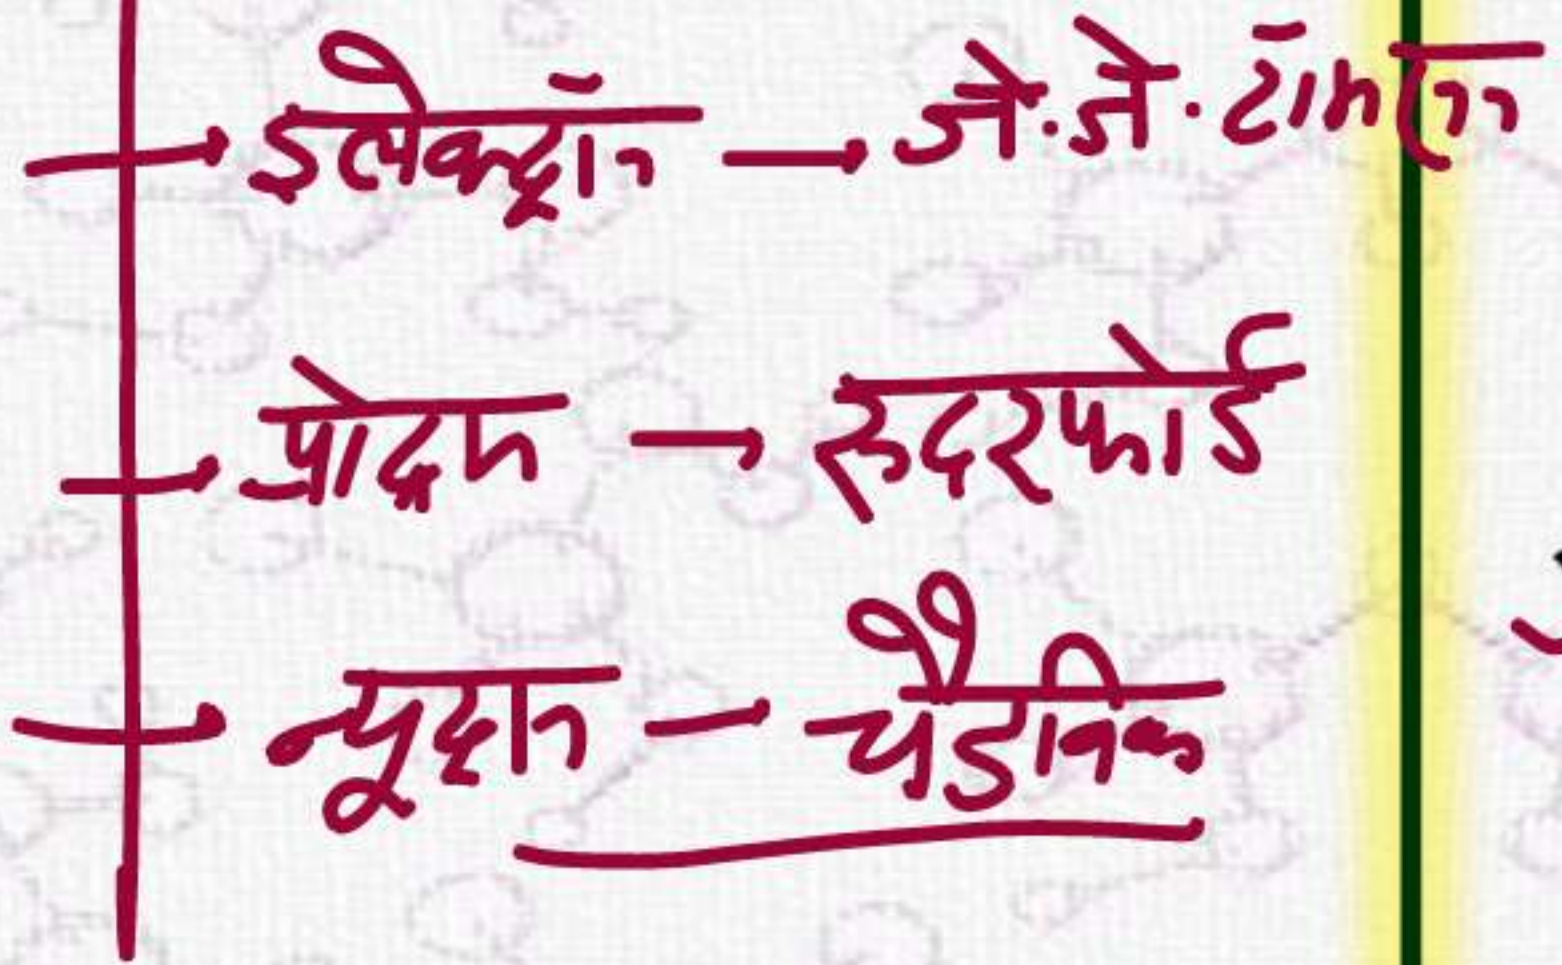 → इलेक्ट्रॉन → जे.जे. टॉमसन
→ प्रोटॉन → रुदरफोर्ड
→ न्यूट्रान → चैडविक